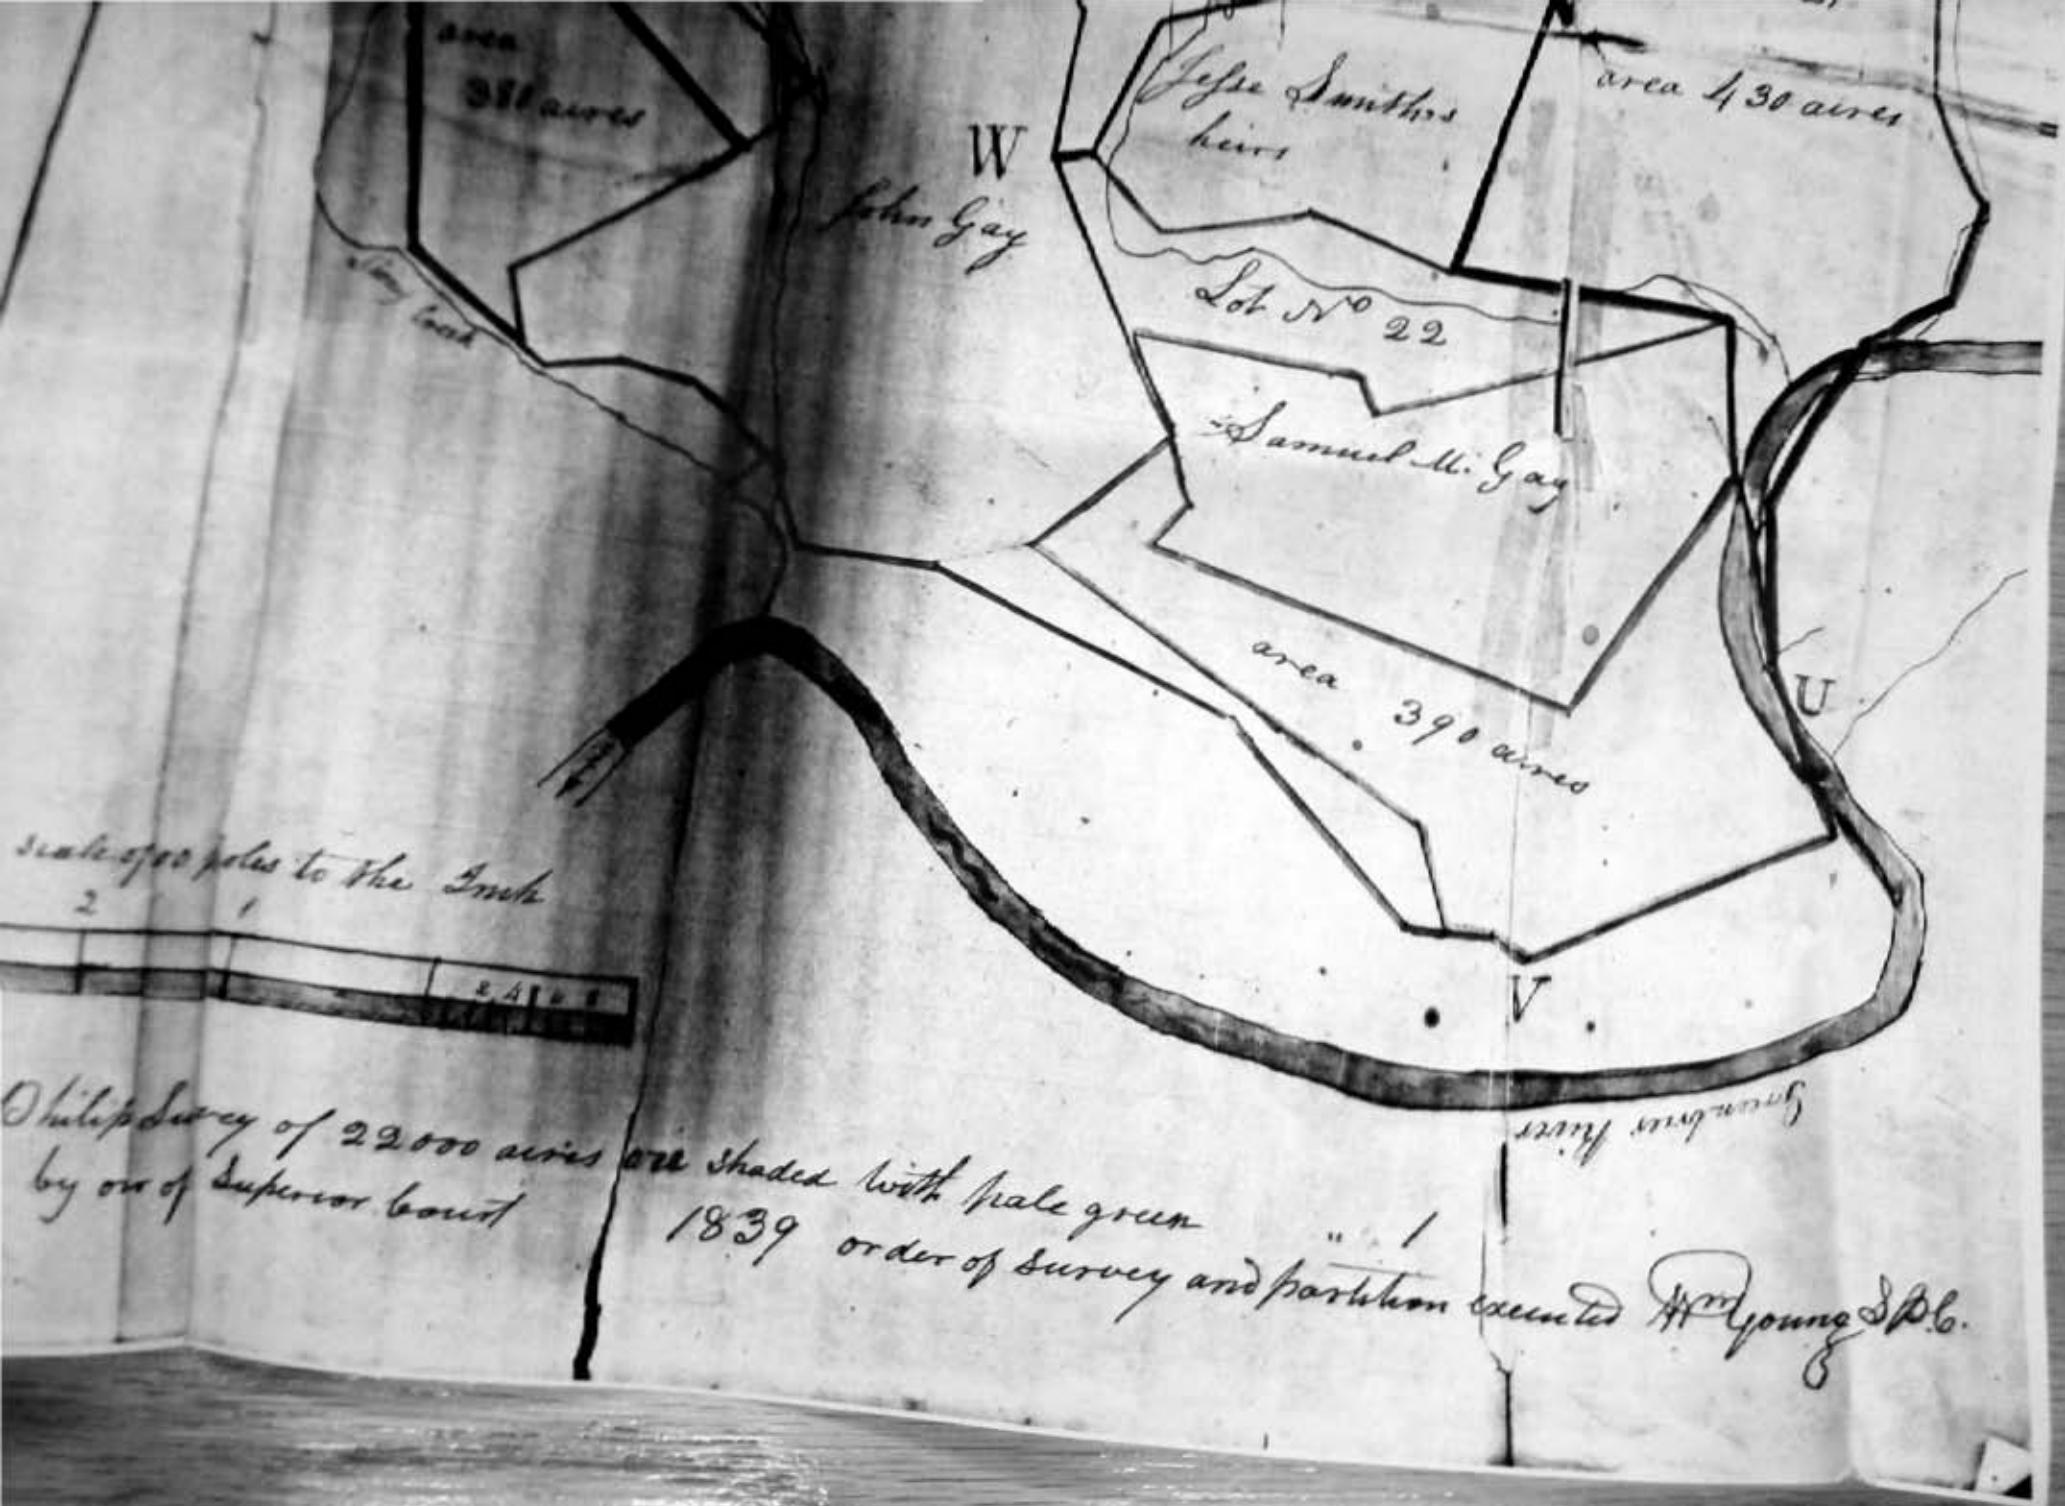 area
380 acres
Jesse Smith's
heirs
area 430 acres
W
John Gay
Lot No 22
Samuel M. Gay
area 390 acres
U
V
Greenbrier River
scale of 00 poles to the Inch
2 1
2 4 6 8
Philip Survey of 22000 acres are shaded with pale green
by or of Superior Court
" 1
1839 order of survey and partition executed Wm Young S P. C.